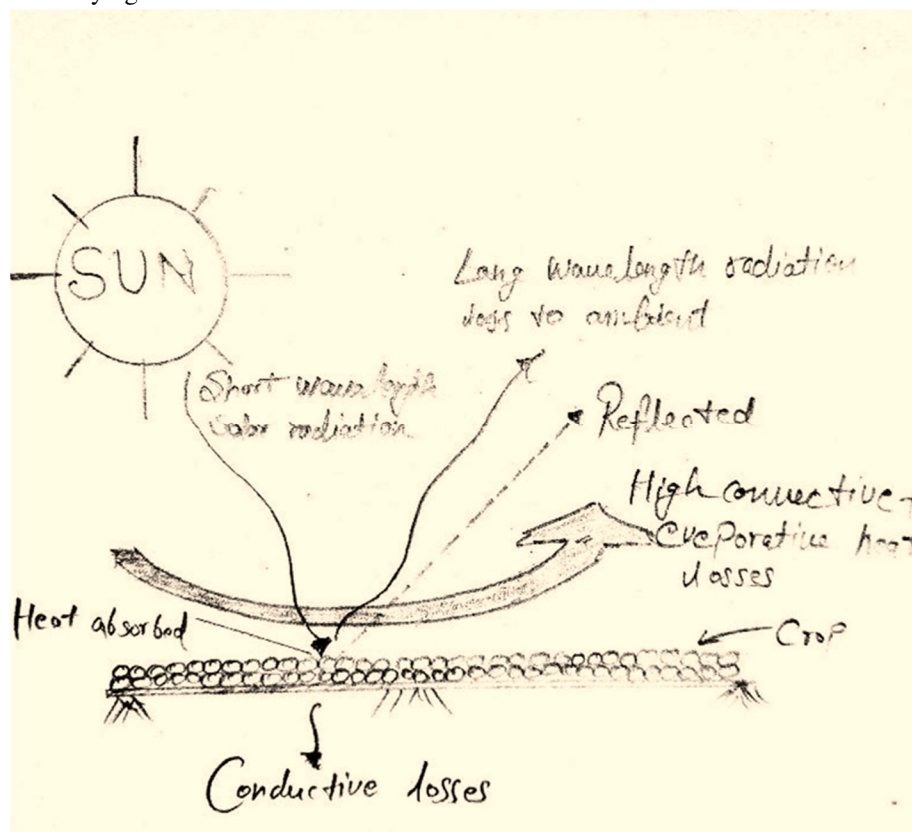 SUN
Long wavelength radiation
loss to ambient
Short wavelength
solar radiation
Reflected
High connective +
Eveporative heat
losses
Heat absorbed
Crop
Conductive losses